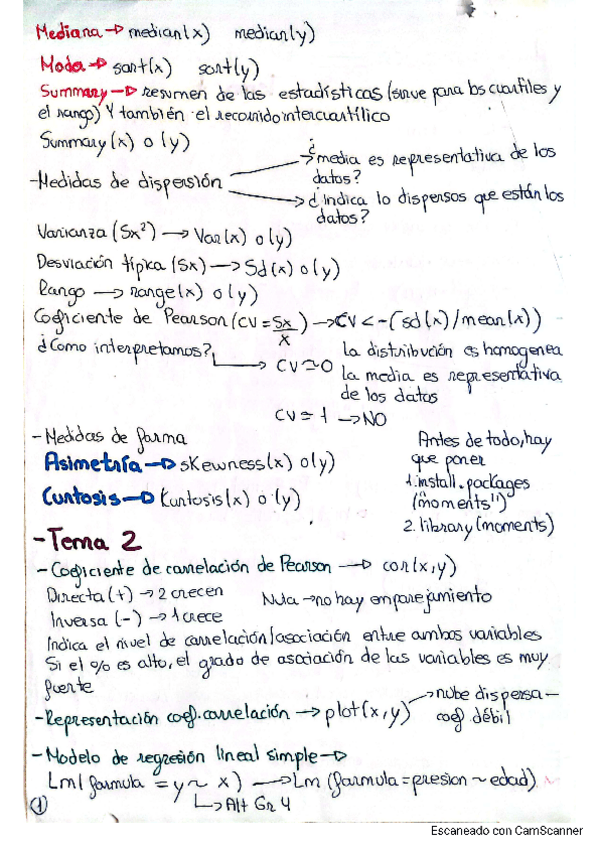 Mediana → median(x) median(y)
Moda → sort(x) sort(y)
Summary → resumen de las estadísticas (sirve para los cuartiles y
el rango) Y también el recorrido intercuartílico
Summary(x) o (y)
- Medidas de dispersión
→ ¿media es representativa de los
datos?
→ ¿Indica lo dispersos que están los
datos?
Varianza (Sx²) → Var(x) o (y)
Desviación típica (Sx) → Sd(x) o (y)
Rango → range(x) o (y)
Coeficiente de Pearson (CV = Sx/x) → CV <- (sd(x)/mean(x))
¿Como interpretamos?
→ CV ≃ 0
la distribución es homogenea
la media es representativa
de los datos
CV = 1 → NO
- Medidas de forma
Asimetría → skewness(x) o (y)
Curtosis → Kurtosis(x) o (y)
Antes de todo, hay
que poner
1. install.packages
("moments")
2. library(moments)
- Tema 2
- Coeficiente de correlación de Pearson → cor(x,y)
Directa (+) → 2 crecen
Nula → no hay emparejamiento
Inversa (-) → 1 crece
Indica el nivel de correlación/asociación entre ambos variables
Si el % es alto, el grado de asociación de las variables es muy
fuerte
- Representación coef. correlación → plot(x,y)
→ nube dispersa -
coef débil
- Modelo de regresión lineal simple →
Lm( formula = y ~ x) → Lm (formula = presion ~ edad)
→ Alt Gr 4
1
Escaneado con CamScanner